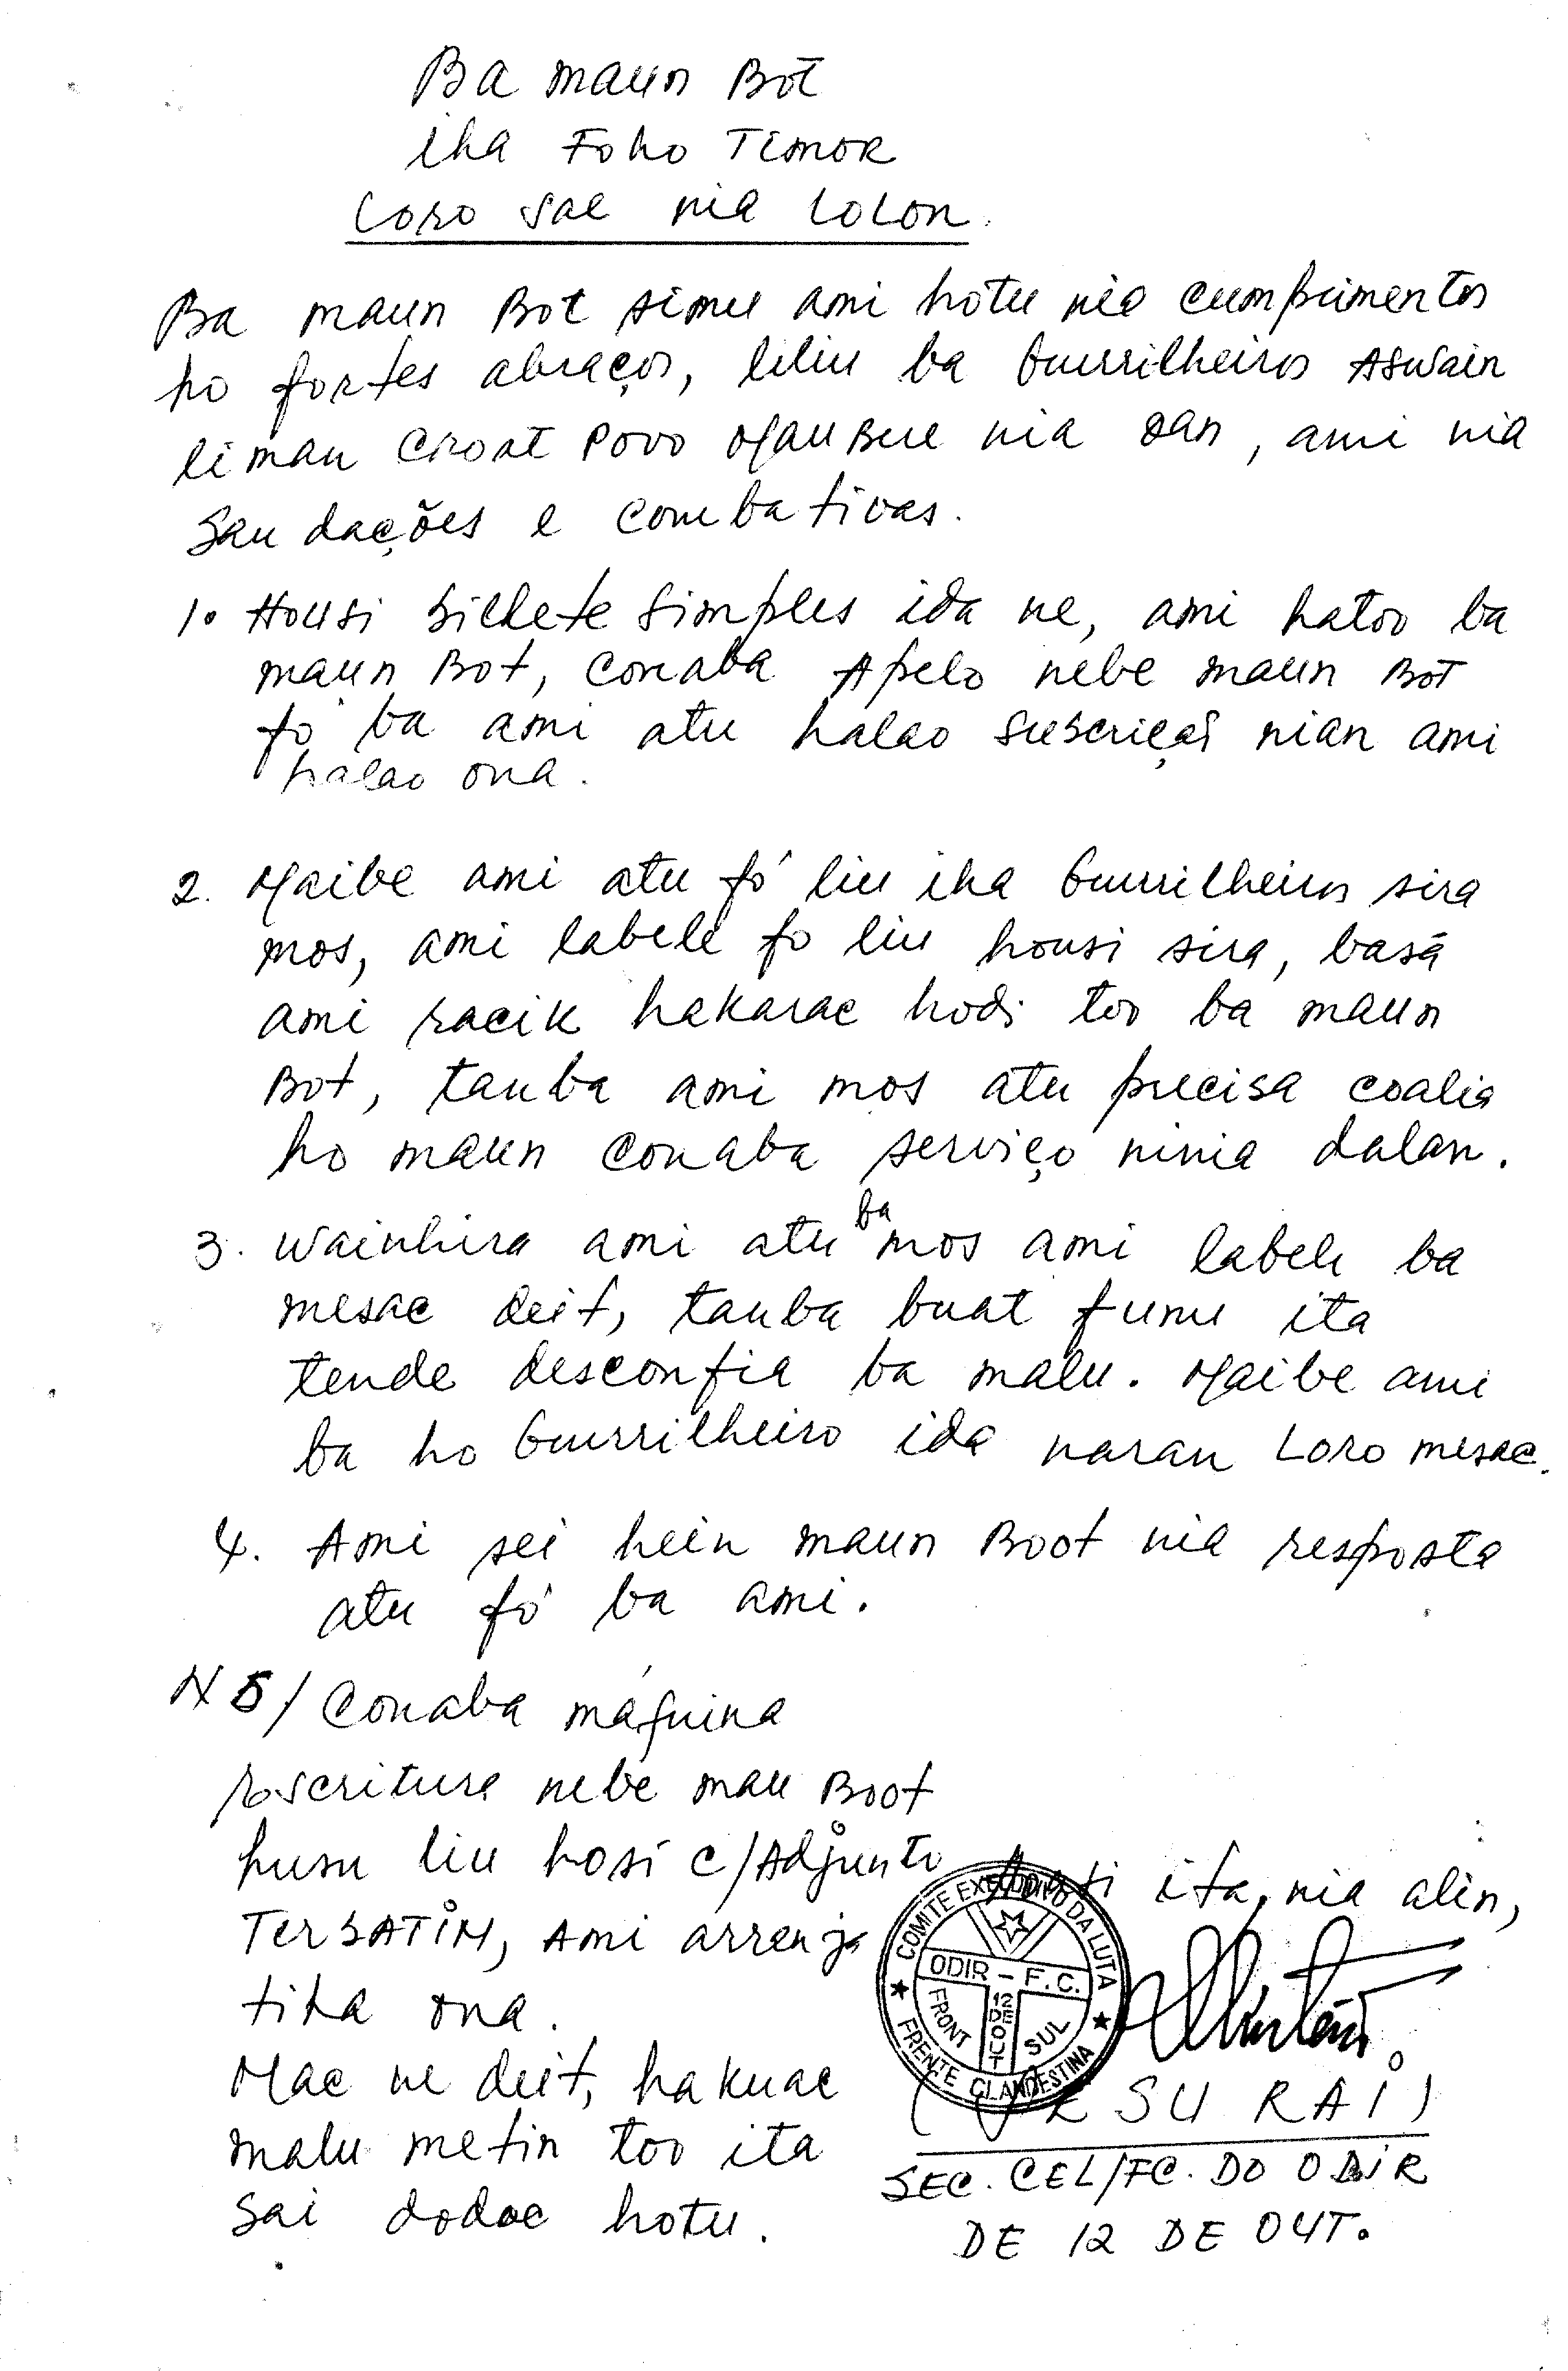 Ba maun Bot
iha Foho Timor
Loro sae nia Lolon.
Ba maun Bot simu ami hotu nia cumprimentos
ho fortes abraços, liliu ba Guerrilheiros Aswain
liman Croat Povo Maubere nia oan, ami nia
Saudações e combativas.
1. Housi bilhete simples ida ne, ami hatoo ba
maun Bot, conaba Apelo nebe maun Bot
fo ba ami atu halao suscriçaõ nian ami
halao ona.
2. Maibe ami atu fó liu iha Guerrilheiros sira
mos, ami labele fo liu housi sira, basá
ami racik hakarac hodi too ba maun
Bot, tanba ami mos atu precisa coalia
ho maun conaba serviço ninia dalan.
3. Wainhira ami atu ba mos ami labele ba
mesac deit, tanba buat funu ita
tende desconfia ba malu. Maibe ami
ba ho Guerrilheiro ida naran Loro mesac.
4. Ami sei hein maun Boot nia resposta
atu fó ba ami.
NB/ Conaba máquina
escritura nebe mau Boot
husu liu hosi c/Adjunto
TERSATIM, Ami arrenja
tiha ona.
Mac ne deit, hakuac
malu metin too ita
sai dodoc hotu.
Hosi ita, nia alin,
COMITE EXECUTIVO DA LUTA
ODIR - F.C.
FRONT 12 DE OUT SUL
FRENTE CLANDESTINA
(URSU RAI)
SEC. CEL/FC. DO ODIR
DE 12 DE OUT.